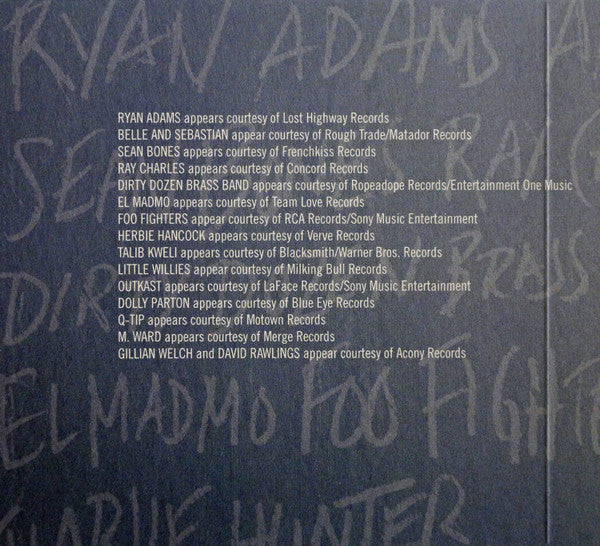 RYAN ADAMS
RYAN ADAMS appears courtesy of Lost Highway Records
BELLE AND SEBASTIAN appear courtesy of Rough Trade/Matador Records
SEAN BONES appears courtesy of Frenchkiss Records
RAY CHARLES appears courtesy of Concord Records
DIRTY DOZEN BRASS BAND appears courtesy of Ropeadope Records/Entertainment One Music
EL MADMO appears courtesy of Team Love Records
FOO FIGHTERS appear courtesy of RCA Records/Sony Music Entertainment
HERBIE HANCOCK appears courtesy of Verve Records
TALIB KWELI appears courtesy of Blacksmith/Warner Bros. Records
LITTLE WILLIES appear courtesy of Milking Bull Records
OUTKAST appears courtesy of LaFace Records/Sony Music Entertainment
DOLLY PARTON appears courtesy of Blue Eye Records
Q-TIP appears courtesy of Motown Records
M. WARD appears courtesy of Merge Records
GILLIAN WELCH and DAVID RAWLINGS appear courtesy of Acony Records
BRASS
EL MADMO FOO FIGHTE
HUNTER